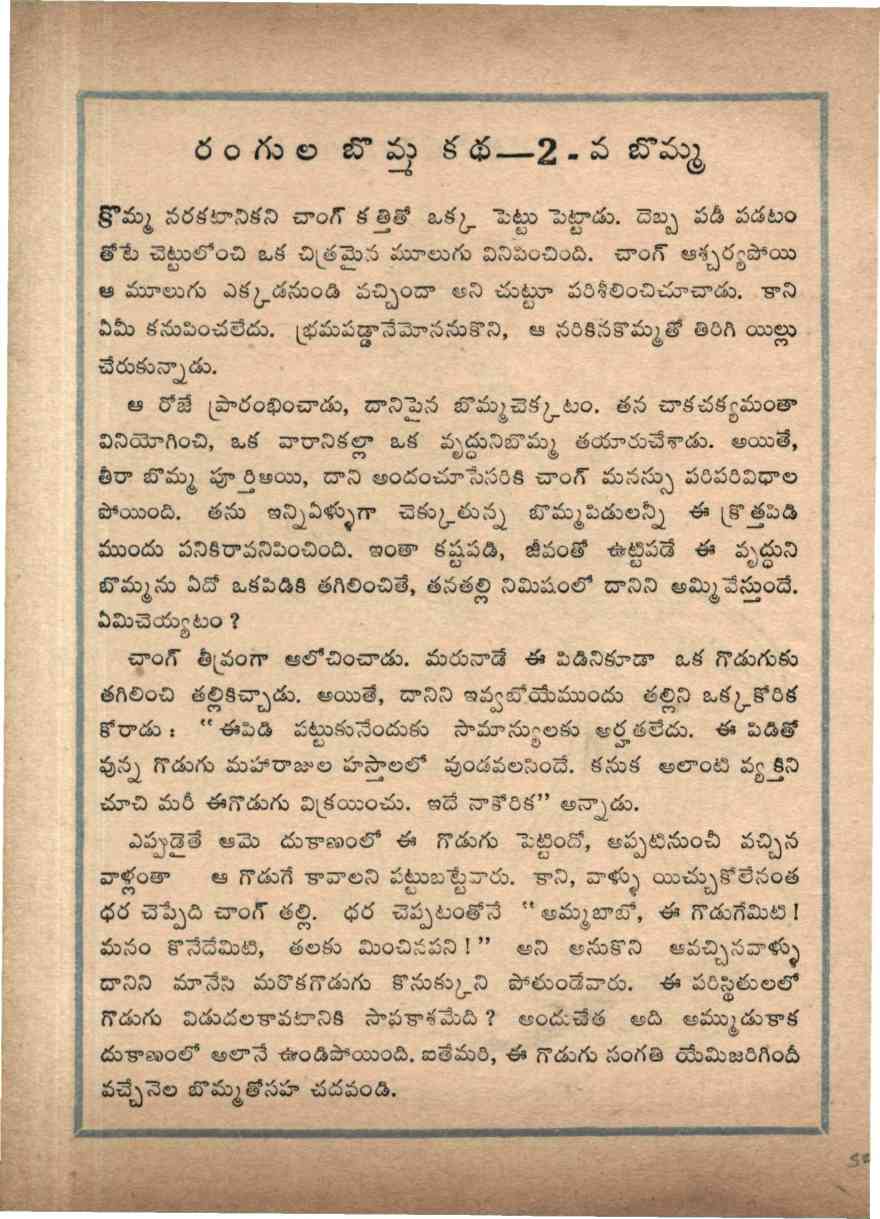 రంగుల బొమ్మ కథ—2-వ బొమ్మ
కొమ్మ నరకటానికని చాంగ్ కత్తితో ఒక్క పెట్టు పెట్టాడు. దెబ్బ పడీ పడటం
తోటే చెట్టులోంచి ఒక చిత్రమైన మూలుగు వినిపించింది. చాంగ్ ఆశ్చర్యపోయి
ఆ మూలుగు ఎక్కడనుండి వచ్చిందా అని చుట్టూ పరిశీలించిచూచాడు. కాని
ఏమీ కనుపించలేదు. భ్రమపడ్డానేమోననుకొని, ఆ నరికినకొమ్మతో తిరిగి యిల్లు
చేరుకున్నాడు.
ఆ రోజే ప్రారంభించాడు, దానిపైన బొమ్మచెక్కటం. తన చాకచక్యమంతా
వినియోగించి, ఒక వారానికల్లా ఒక వృద్ధునిబొమ్మ తయారుచేశాడు. అయితే,
తీరా బొమ్మ పూర్తిఅయి, దాని అందంచూసేసరికి చాంగ్ మనస్సు పరిపరివిధాల
పోయింది. తను ఇన్నిఏళ్ళుగా చెక్కుతున్న బొమ్మపిడులన్నీ ఈ క్రొత్తపిడి
ముందు పనికిరావనిపించింది. ఇంతా కష్టపడి, జీవంతో ఉట్టిపడే ఈ వృద్ధుని
బొమ్మను ఏదో ఒకపిడికి తగిలించితే, తనతల్లి నిమిషంలో దానిని అమ్మివేస్తుందే.
ఏమిచెయ్యటం ?
చాంగ్ తీవ్రంగా ఆలోచించాడు. మరునాడే ఈ పిడినికూడా ఒక గొడుగుకు
తగిలించి తల్లికిచ్చాడు. అయితే, దానిని ఇవ్వబోయేముందు తల్లిని ఒక్కకోరిక
కోరాడు : “ఈపిడి పట్టుకునేందుకు సామాన్యులకు అర్హతలేదు. ఈ పిడితో
వున్న గొడుగు మహారాజుల హస్తాలలో వుండవలసిందే. కనుక అలాంటి వ్యక్తిని
చూచి మరీ ఈగొడుగు విక్రయించు. ఇదే నాకోరిక” అన్నాడు.
ఎప్పుడైతే ఆమె దుకాణంలో ఈ గొడుగు పెట్టిందో, అప్పటినుంచీ వచ్చిన
వాళ్లంతా ఆ గొడుగే కావాలని పట్టుబట్టేవారు. కాని, వాళ్ళు యిచ్చుకోలేనంత
ధర చెప్పేది చాంగ్ తల్లి. ధర చెప్పటంతోనే “అమ్మబాబో, ఈ గొడుగేమిటి !
మనం కొనేదేమిటి, తలకు మించినపని !” అని అనుకొని ఆవచ్చినవాళ్ళు
దానిని మానేసి మరొకగొడుగు కొనుక్కుని పోతుండేవారు. ఈ పరిస్థితులలో
గొడుగు విడుదలకావటానికి సావకాశమేది ? అందుచేత అది అమ్ముడుకాక
దుకాణంలో అలానే ఉండిపోయింది. ఐతేమరి, ఈ గొడుగు సంగతి యేమిజరిగిందీ
వచ్చేనెల బొమ్మతోసహ చదవండి.